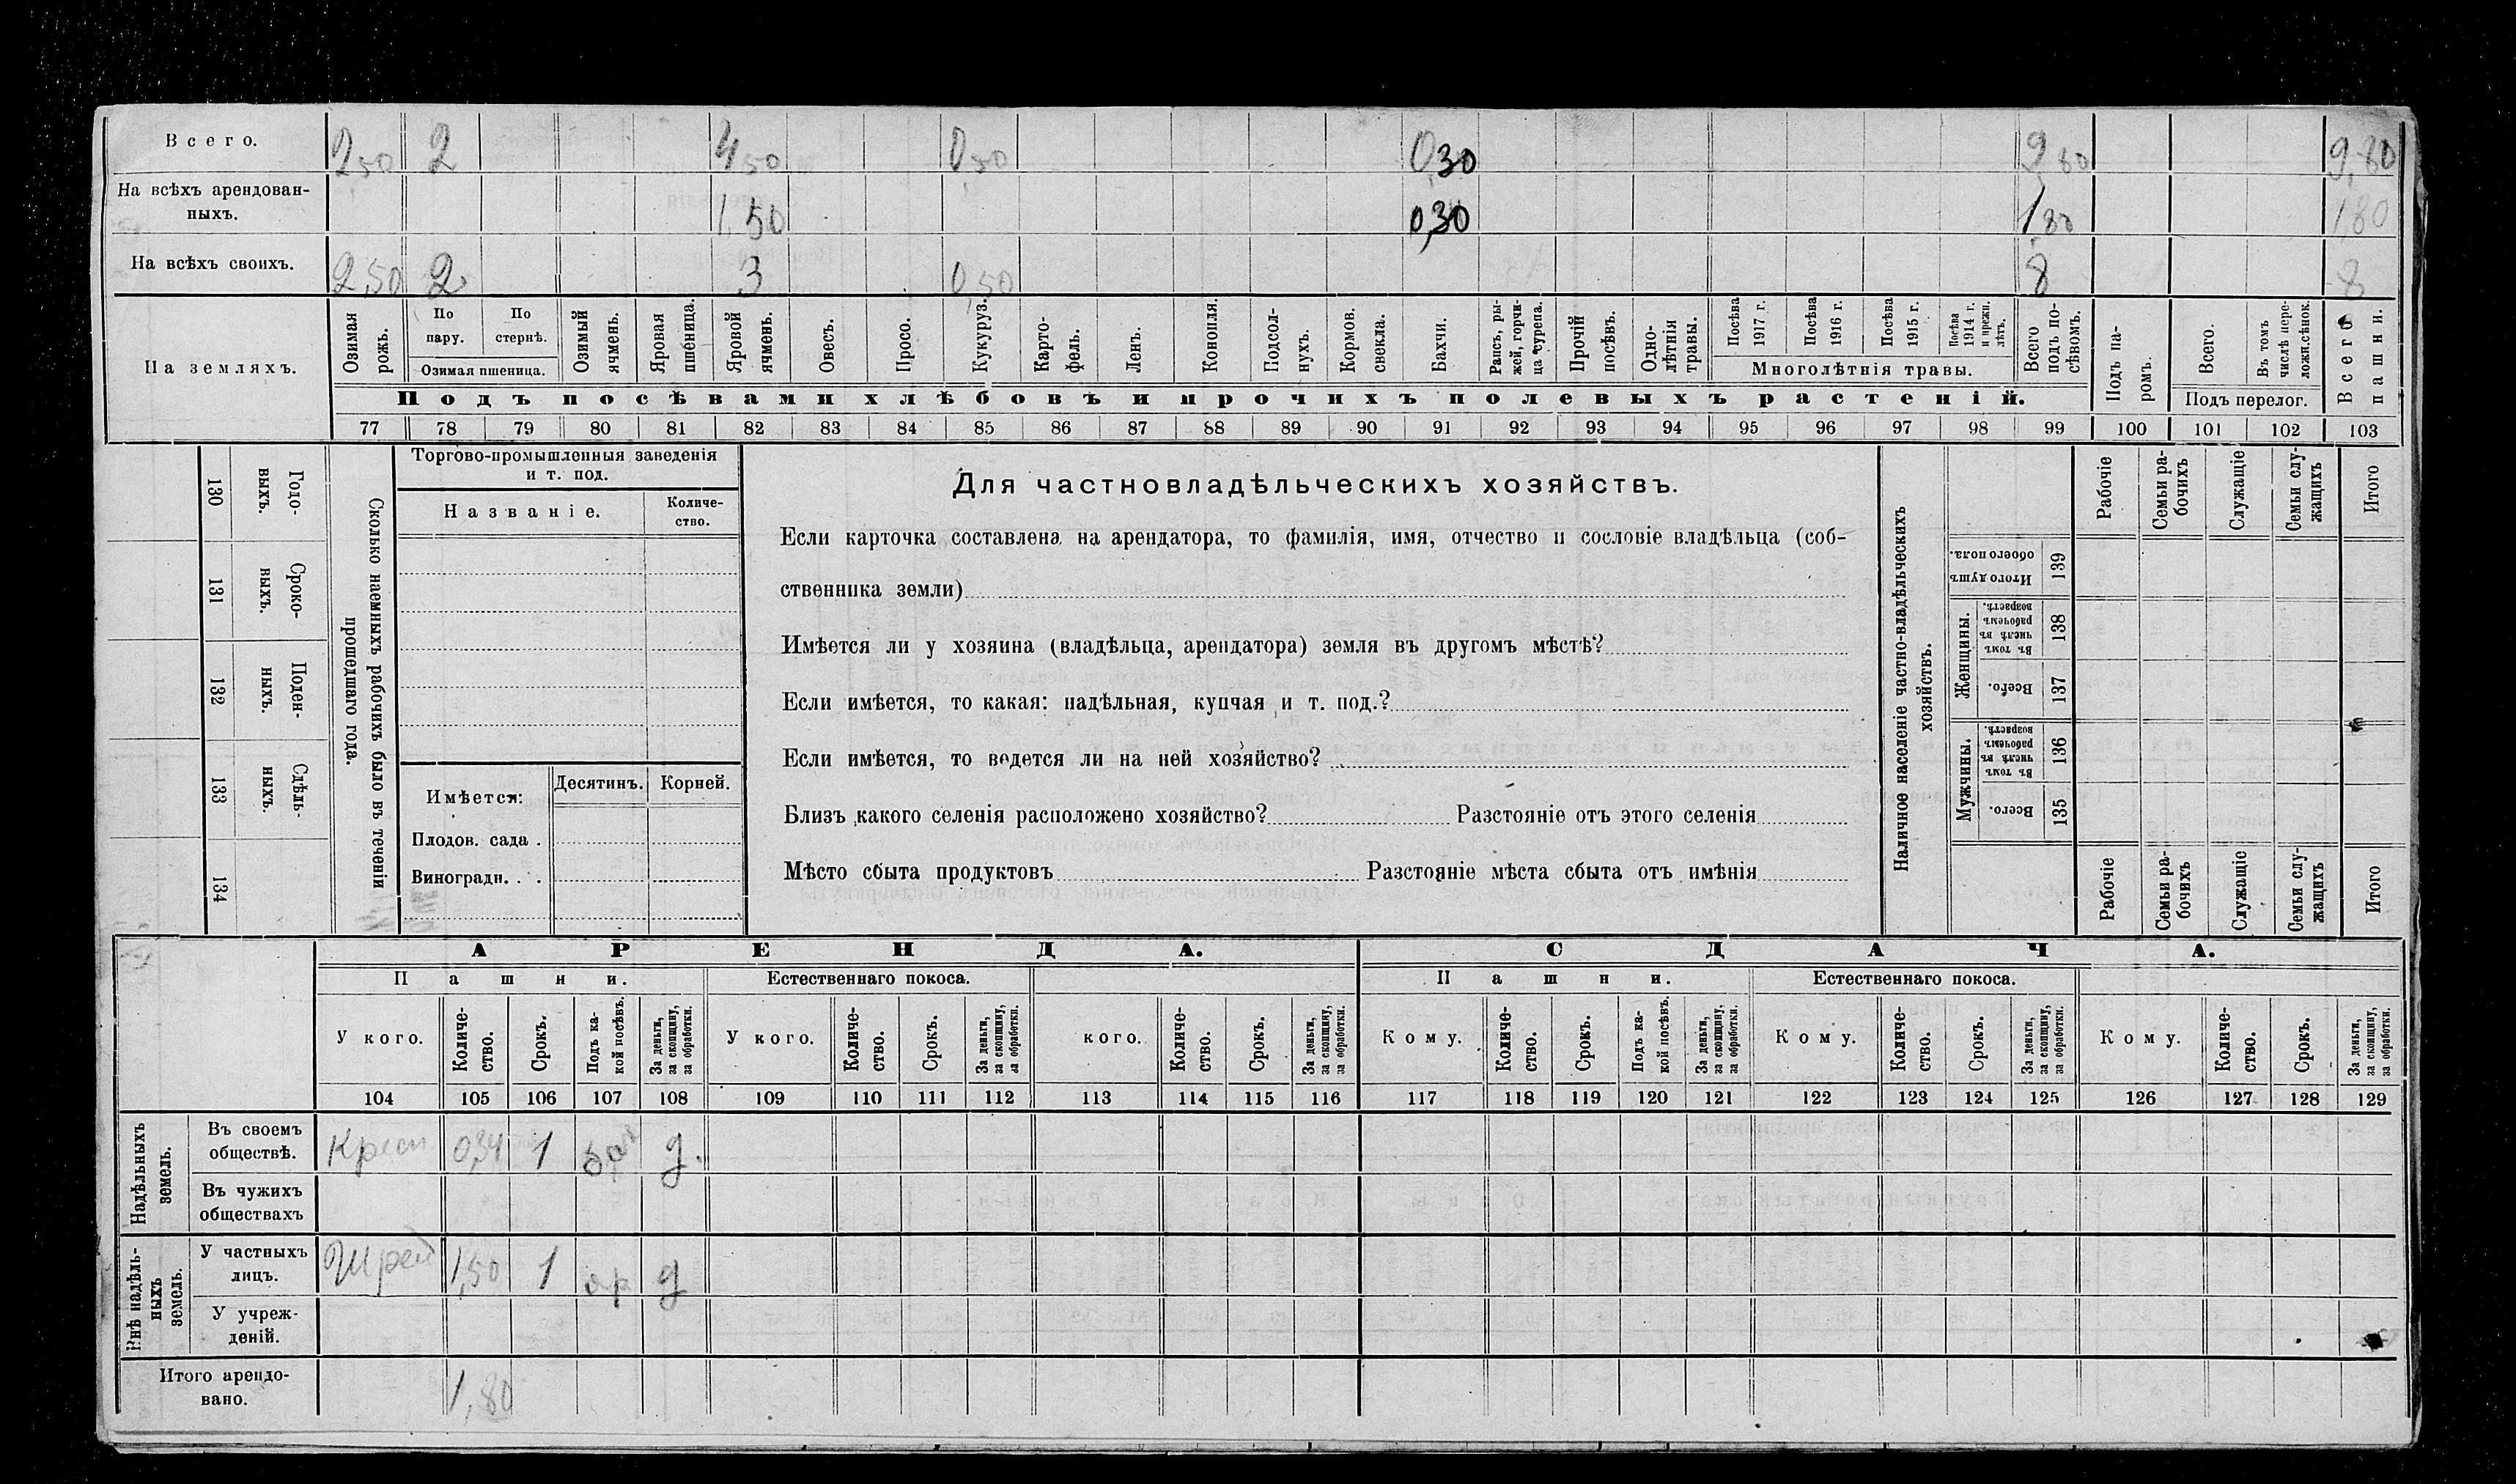 Всего. 2,50 2 4,50 0,50 0,30 9,80 9,80
На всѣхъ арендован-
ныхъ. 1,50 0,30 1,80 1,80
На всѣхъ своихъ. 2,50 2 3 0,50 8 8
На земляхъ.
Озимая рожь.
По пару.
По стернѣ.
Озимая пшеница.
Озимый ячмень.
Яровая пшеница.
Яровой ячмень.
Овесъ.
Просо.
Кукуруз.
Карто-
фель.
Ленъ.
Конопля.
Подсол-
нухъ.
Кормов. свекла.
Бахчи.
Рапсъ, ры-
жей, горчи-
ца сурепа.
Прочій посѣвъ.
Одно-
лѣтнія травы.
Посѣва 1917 г.
Посѣва 1916 г.
Посѣва 1915 г.
Посѣва 1914 г. и прежн. лѣтъ.
Многолѣтнія травы.
Всего подъ по-
сѣвомъ.
Подъ па-
ромъ.
Всего.
Въ томъ числѣ пере-
ложн.сѣнок.
Подъ перелог.
Всего пашни.
Подъ посѣвами хлѣбовъ и прочихъ полевыхъ растеній.
77 78 79 80 81 82 83 84 85 86 87 88 89 90 91 92 93 94 95 96 97 98 99 100 101 102 103
130 Годо-
выхъ.
131 Сроко-
выхъ.
132 Поден-
ныхъ.
133 Сдѣль-
ныхъ.
134
Сколько наемныхъ рабочихъ было въ теченіи
прошедшаго года.
Торгово-промышленныя заведенія
и т. под.
Названіе.
Количе-
ство.
Имѣется: Десятинъ. Корней.
Плодов. сада .
Виноградн. . .
Для частновладѣльческихъ хозяйствъ.
Если карточка составлена на арендатора, то фамилія, имя, отчество и сословіе владѣльца (соб-
ственника земли)
Имѣется ли у хозяина (владѣльца, арендатора) земля въ другомъ мѣстѣ?
Если имѣется, то какая: надѣльная, купчая и т. под.?
Если имѣется, то ведется ли на ней хозяйство?
Близъ какого селенія расположено хозяйство? Разстояніе отъ этого селенія
Мѣсто сбыта продуктовъ Разстояніе мѣста сбыта отъ имѣнія
Наличное населеніе частно-владѣльческихъ
хозяйствъ.
Рабочіе
Семьи ра-
бочихъ
Служащіе
Семьи слу-
жащихъ
Итого
Итого душъ обоего пола. 139
Женщины.
Въ томъ числѣ въ рабочемъ возрастѣ. 138
Всего. 137
Мужчины.
Въ томъ числѣ въ рабочемъ возрастѣ. 136
Всего. 135
Рабочіе
Семьи ра-
бочихъ
Служащіе
Семьи слу-
жащихъ
Итого
АРЕНДА. СДАЧА.
Пашни. Естественнаго покоса. Пашни. Естественнаго покоса.
У кого.
Количе-
ство.
Срокъ.
Подъ ка-
кой посѣвъ.
За деньги,
за скопщину,
за обработки.
У кого.
Количе-
ство.
Срокъ.
За деньги,
за скопщину,
за обработки.
кого.
Количе-
ство.
Срокъ.
За деньги,
за скопщину,
за обработки.
Кому.
Количе-
ство.
Срокъ.
Подъ ка-
кой посѣвъ.
За деньги,
за скопщину,
за обработки.
Кому.
Количе-
ство.
Срокъ.
За деньги,
за скопщину,
за обработки.
Кому.
Количе-
ство.
Срокъ.
За деньги,
за скопщину,
за обработки.
104 105 106 107 108 109 110 111 112 113 114 115 116 117 118 119 120 121 122 123 124 125 126 127 128 129
Надѣльныхъ
земель.
Въ своемъ
обществѣ. Крест 1 д.
Въ чужихъ
обществахъ
Внѣ надѣль-
ныхъ
земель.
У частныхъ
лицъ. 1,50 1 яр д
У учреж-
деній.
Итого арендо-
вано. 1,80